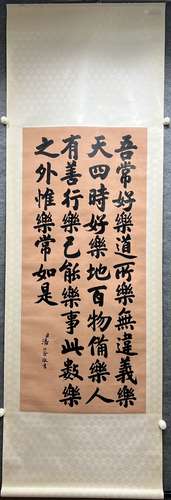 吾常好樂道所樂無違義樂
天四時好樂地百物備樂人
有善行樂己能樂事此數樂
之外惟樂常如是